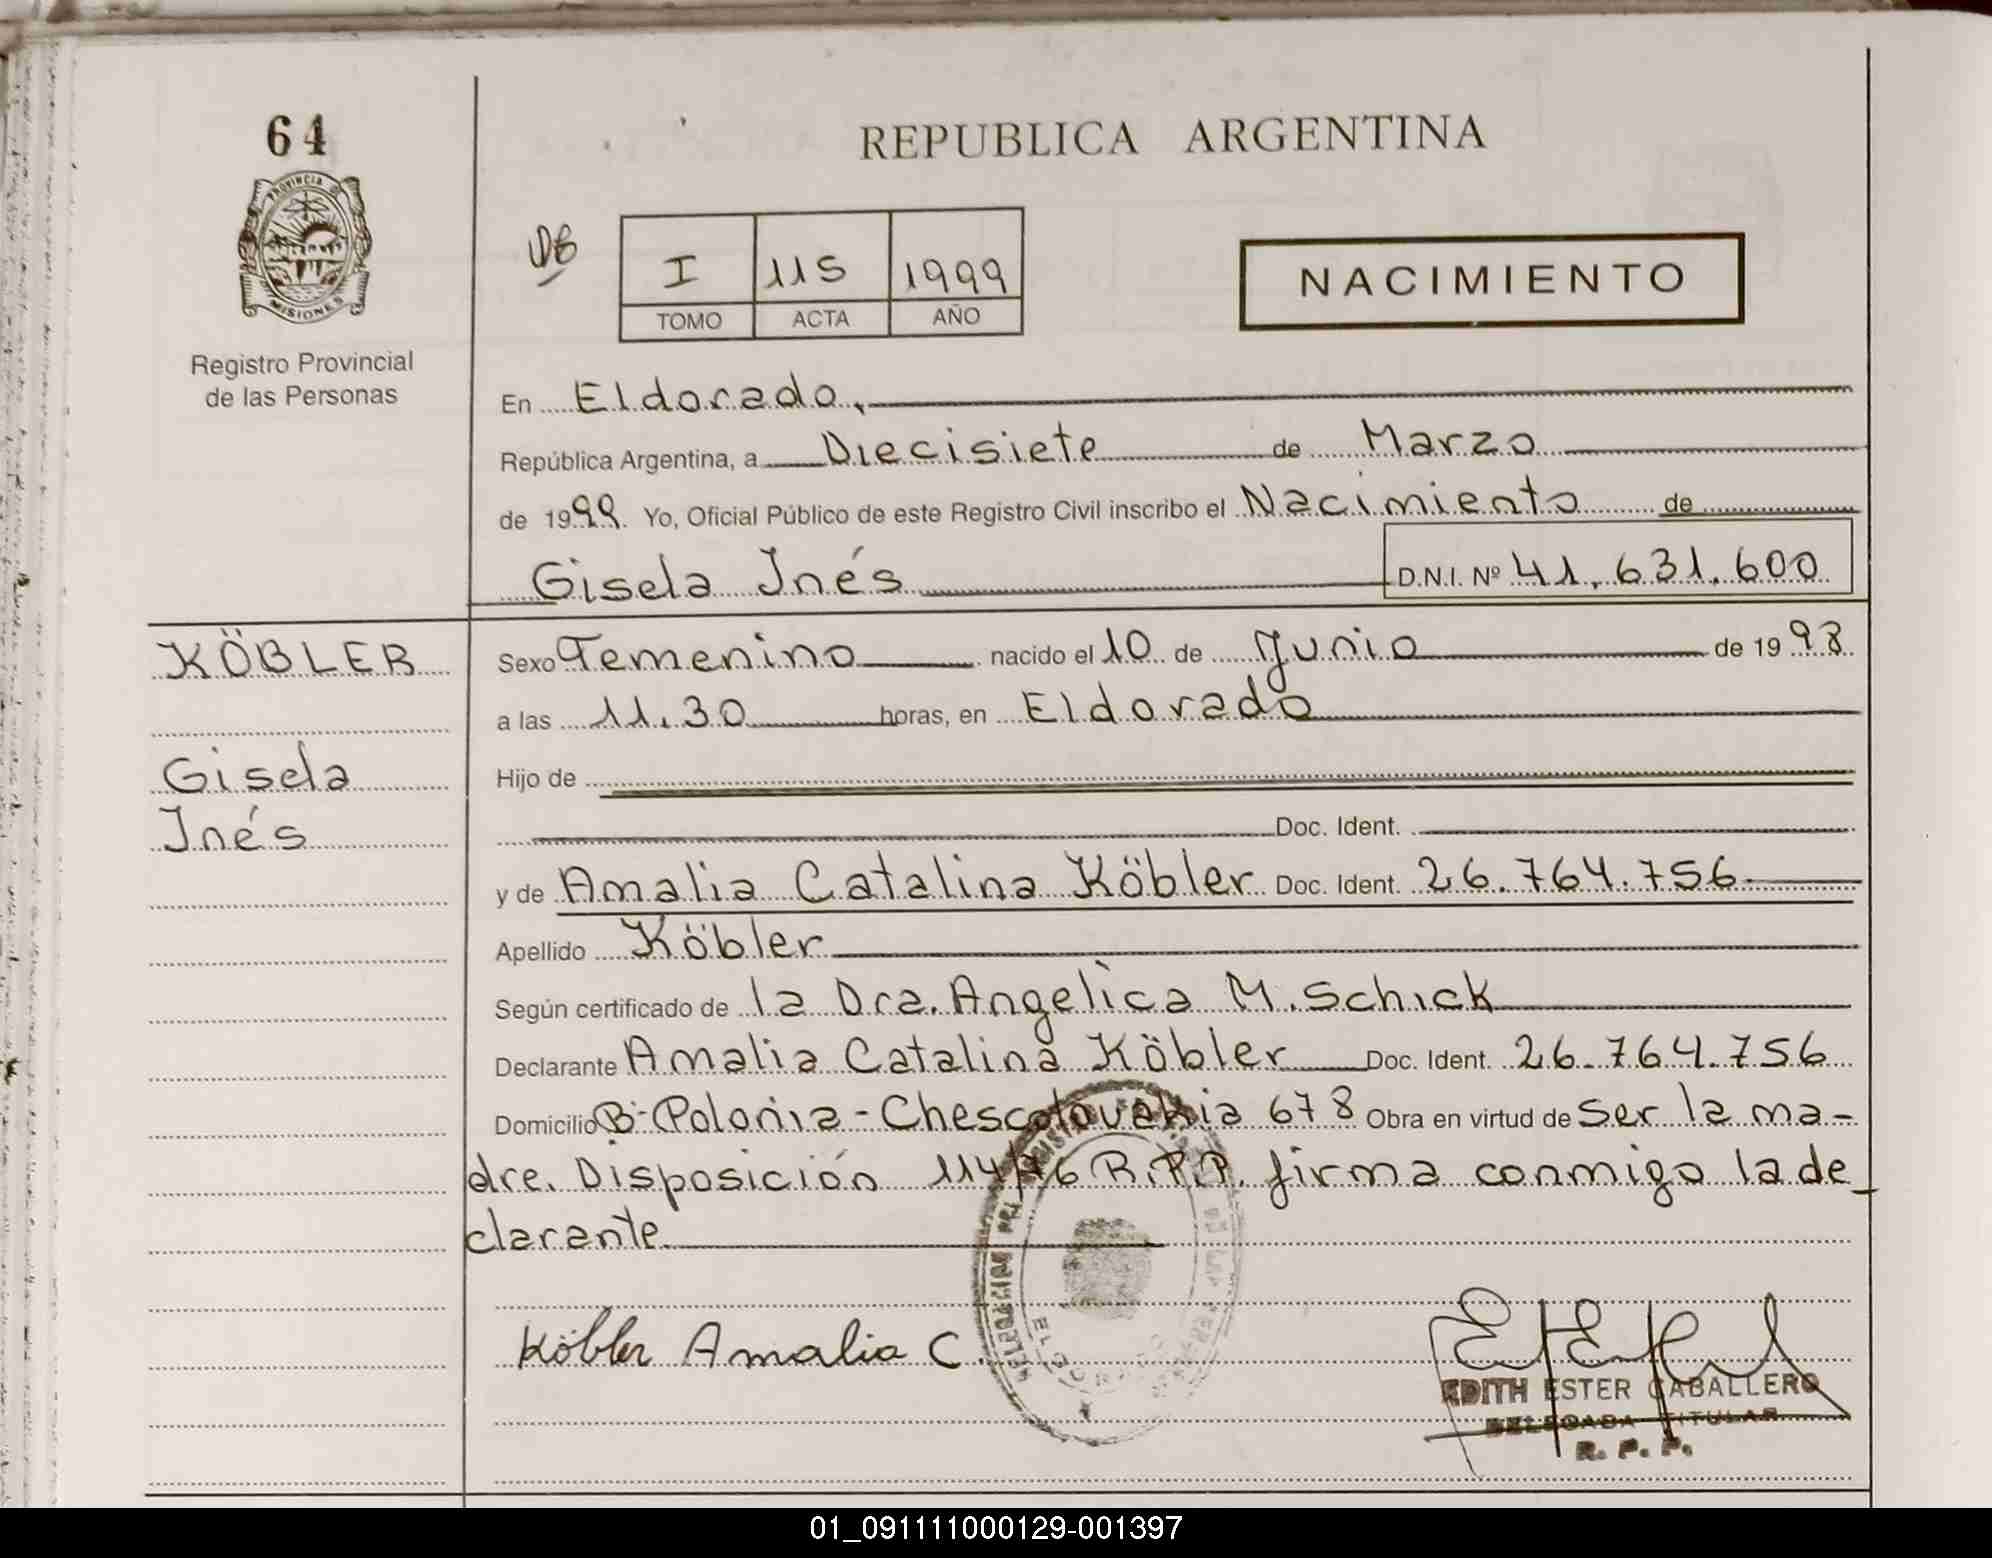 64
PROVINCIA DE
MISIONES
Registro Provincial
de las Personas
REPUBLICA ARGENTINA
I 115 1999
TOMO ACTA AÑO
NACIMIENTO
En Eldorado,
República Argentina, a Diecisiete de Marzo
de 1999. Yo, Oficial Público de este Registro Civil inscribo el Nacimiento de
Gisela Inés D.N.I. Nº 41.631.600
KÖBLER
Gisela
Inés
Sexo Femenino nacido el 10 de Junio de 1998
a las 11.30 horas, en Eldorado
Hijo de
Doc. Ident.
y de Amalia Catalina Köbler Doc. Ident. 26.764.756
Apellido Köbler
Según certificado de la Dra. Angèlica M. Schick
Declarante Amalia Catalina Köbler Doc. Ident. 26.764.756
Domicilio Bº Polonia - Chescolovakia 678 Obra en virtud de ser la ma-
dre. Disposición 114/76 R.P.P. firma conmigo la de_
clarante
Köbler Amalia C.
EDITH ESTER CABALLERO
DELEGADA TITULAR
R. P. P.
01_091111000129-001397